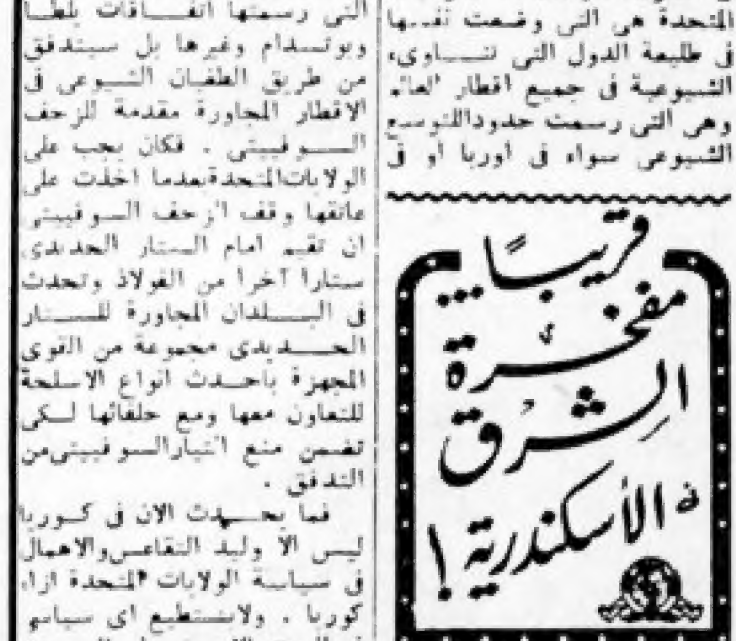 المتحدة هى التى وضعت نفسها
فى طليعة الدول التى تنـــاوىء
الشيوعية فى جميع اقطار العالم
وهى التى رسمت حدودالتوسع
الشيوعى سواء فى اوربا او فى
قريبًا...
مفخرة
الشرق
فى الأسكندرية !
التى رسمتها اتفـــاقات يلطـا
وبوتسدام وغيرها بل سيتدفق
من طريق الطغيان الشيوعى فى
الاقطار المجاورة مقدمة للزحف
الســـوفييتى . فكان يجب على
الولاياتالمتحدةبعدما اخذت على
عاتقها وقف الزحف السوفييتى
ان تقيم امام الستار الحديدى
ستارا آخرا من الفولاذ وتحدث
فى البـــلدان المجاورة للســـتار
الحـــديدى مجموعة من القوى
المجهزة باحـدث انواع الاسلحة
للتعاون معها ومع حلفائها لـكى
تضمن منع التيارالسوفييتىمن
التدفق .
فما يحـــدث الان فى كـوريا
ليس الا وليد التقاعسوالاهمال
فى سياسة الولايات المتحدة ازاء
كوريا . ولايستطيع اى سياسى